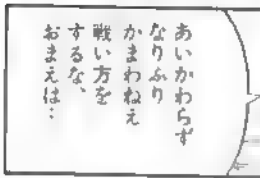 あいかわらず
なりふり
かまわねえ
戦い方を
するな、
おまえは…